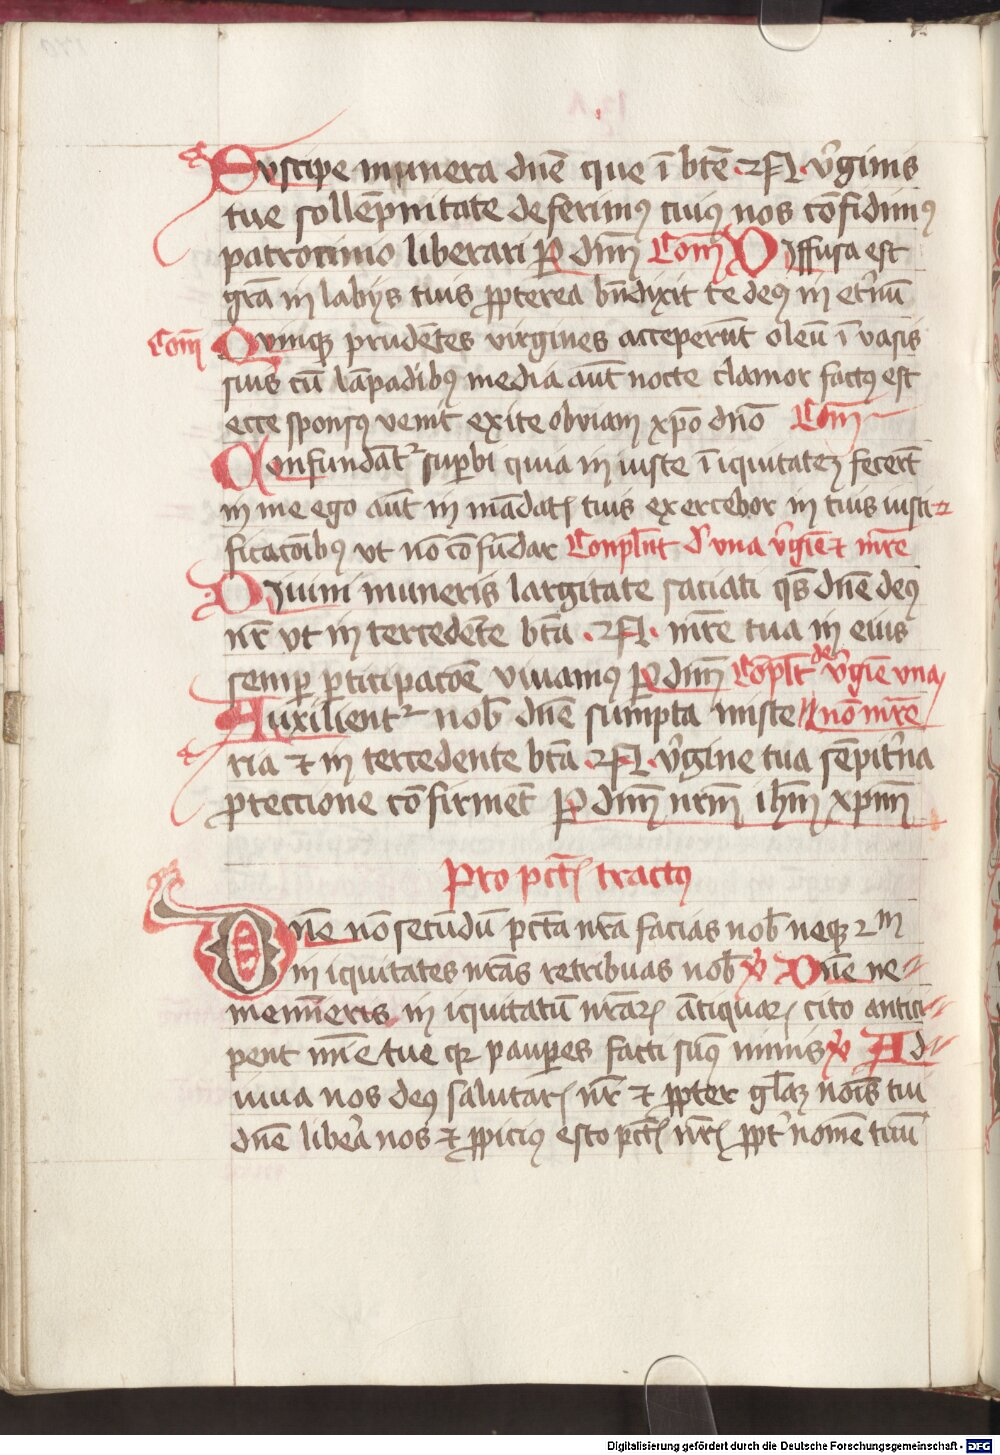 Suscipe munera dne̅ que i̅ bte̅ .N. v̓ginis
tue solle̅pnitate deferimꝰ cuiꝰ nos co̅fidimꝰ
patrocinio liberari P dnm̅ Com̅ Diffusa est
gra̅ in labijs tuis ꝓpterea bn̅dixit te deꝰ in et̓nu̅
Com̅ Quinqꝫ prude̅tes virgines acceperu̅t oleu̅ i̅ vasis
suis cu̅ la̅padibꝰ media au̅t nocte clamor factꝰ est
ecce sponsꝰ venit exite obviam xp̅o dno̅ Com̅
Confunda̅tᷣ suꝑbi quia in iuste i̅ iquitateꝫ fecer̅t
in me ego au̅t in ma̅datꝭ tuis exercebor in tuis iusti
ficaco̅ibꝰ vt no̅ co̅fundar Conpl̅nt d̓ vna v̓gie̅ ⁊ mr̅e
Diuini muneris largitate saciati qs̅ dne̅ deꝰ
nr̅ vt in tercede̅te bta̅ .N. mr̅e tua in eius
semꝑ ꝑticipaco̅e viuamꝰ P dnm̅ Co̅pl̅t de v̓gie̅ vna
Auxilientᷣ nob̅ dne̅ sumpta miste no̅ mr̅e
ria ⁊ in tercedente bta̅ .N. v̓gine tua se̅pit̓na
ꝓteccione co̅firme̅t P dnm̅ nrm̅ ihm̅ xpm̅
Pro pctꝭ̅ tractꝰ
Dne̅ no̅ secu̅du̅ pcta̅ nr̅a facias nob̅ neqꝫ 2m
in iquitates nr̅as retribuas nob̅ ℣ Dne̅ ne
memi̅eris in iquitatu̅ nr̅arꝝ a̅tiquarꝝ cito antici
pent mi̅e tue qr pauꝑes facti suꝰ nimis ℣ Ad
iuua nos deꝰ salutarꝭ nr̅ ⁊ ꝓpter gl̅aꝫ no̅is tui
dne̅ libe̓a nos ⁊ ꝓpiciꝰ esto pctꝭ̅ nr̅ꝭ ꝓpt̓ nome̅ tuu̅
Digitalisierung gefördert durch die Deutsche Forschungsgemeinschaft - DFG